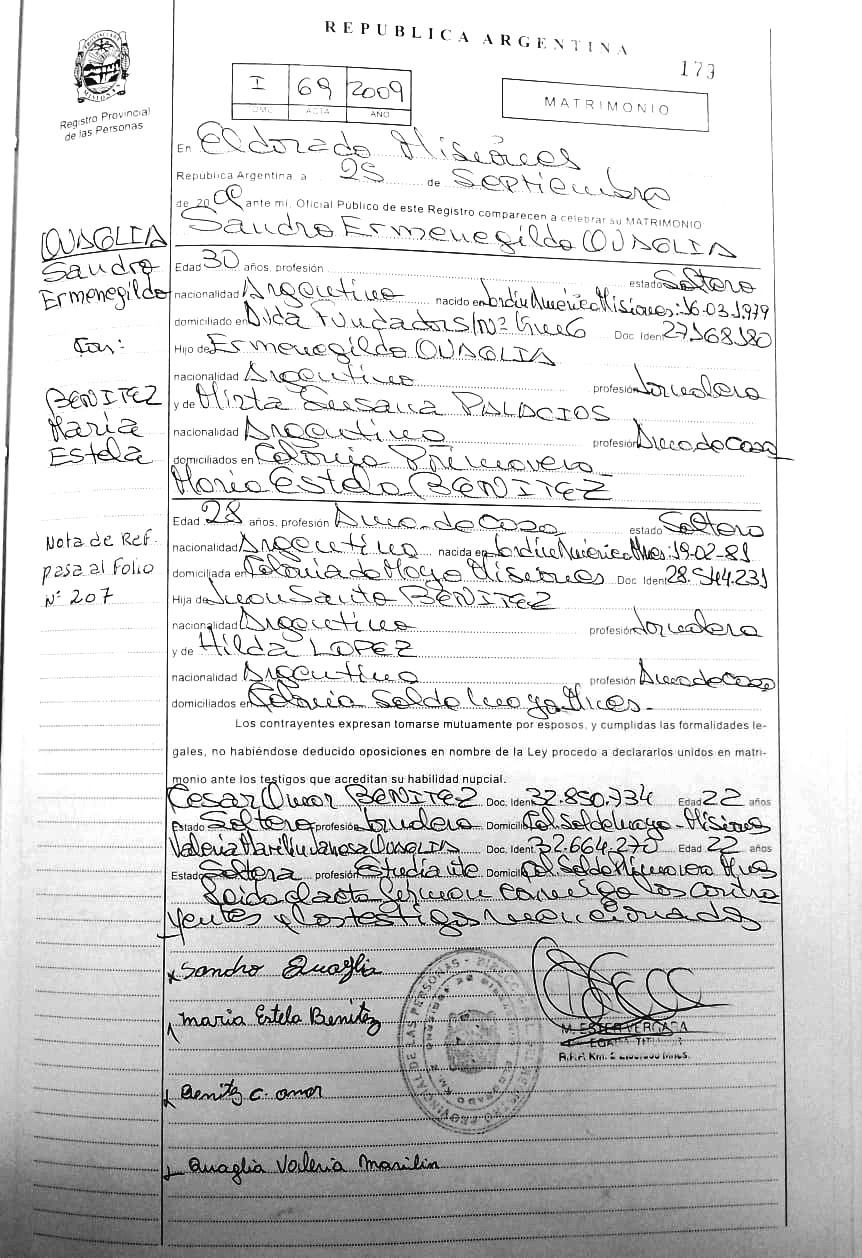 REPUBLICA ARGENTINA
173
I 69 2009
TOMO ACTA AÑO
MATRIMONIO
Registro Provincial
de las Personas
En Eldorado Misiones
Republica Argentina, a 25 de Septiembre
de 2009 ante mí, Oficial Público de este Registro comparecen a celebrar su MATRIMONIO
Sandro Ermenegildo QUAGLIA
QUAGLIA
Sandro
Ermenegildo
Con:
BENITEZ
Maria
Estela
Nota de Ref.
pasa al Folio
N° 207
Edad 30 años, profesión estado Soltero
nacionalidad Argentino nacido en Jardin América Misiones: 16-03-1979
domiciliado en Avda Fundadores Doc. Ident. 27.168.180
Hijo de Ermenegildo QUAGLIA
nacionalidad Argentino profesión Jornalero
y de Mirta Susana PALACIOS
nacionalidad Argentina profesión Ama de Casa
domiciliados en Colonia Primavera
Maria Estela BENITEZ
Edad 28 años, profesión Ama de Casa estado Soltera
nacionalidad Argentina nacida en Jardin América Mnes: 19-02-81
domiciliada en Colonia de Mayo Misiones Doc. Ident. 28.544.231
Hija de Juan Santo BENITEZ
nacionalidad Argentino profesión Jornalero
y de Hilda LOPEZ
nacionalidad Argentina profesión Ama de Casa
domiciliados en Colonia Sol de Mayo Mnes.
Los contrayentes expresan tomarse mutuamente por esposos, y cumplidas las formalidades le-
gales, no habiéndose deducido oposiciones en nombre de la Ley procedo a declararlos unidos en matri-
monio ante los testigos que acreditan su habilidad nupcial.
Cesar Omar BENITEZ Doc. Ident. 32.850.734 Edad 22 años
Estado Soltero profesión Domicilio Col. Sol de Mayo - Misiones
Valeria Marilin Vanesa QUAGLIA Doc. Ident. 32.664.270 Edad 22 años
Estado Soltera profesión Estudiante Domicilio Col. Primavera Mnes
Leida el acta firman conmigo los contra
yentes y los testigos mencionados
Sandro Quaglia
maria Estela Benitez
M. ESTER VERGARA
Benitez c. omar
Quaglia Valeria Marilin